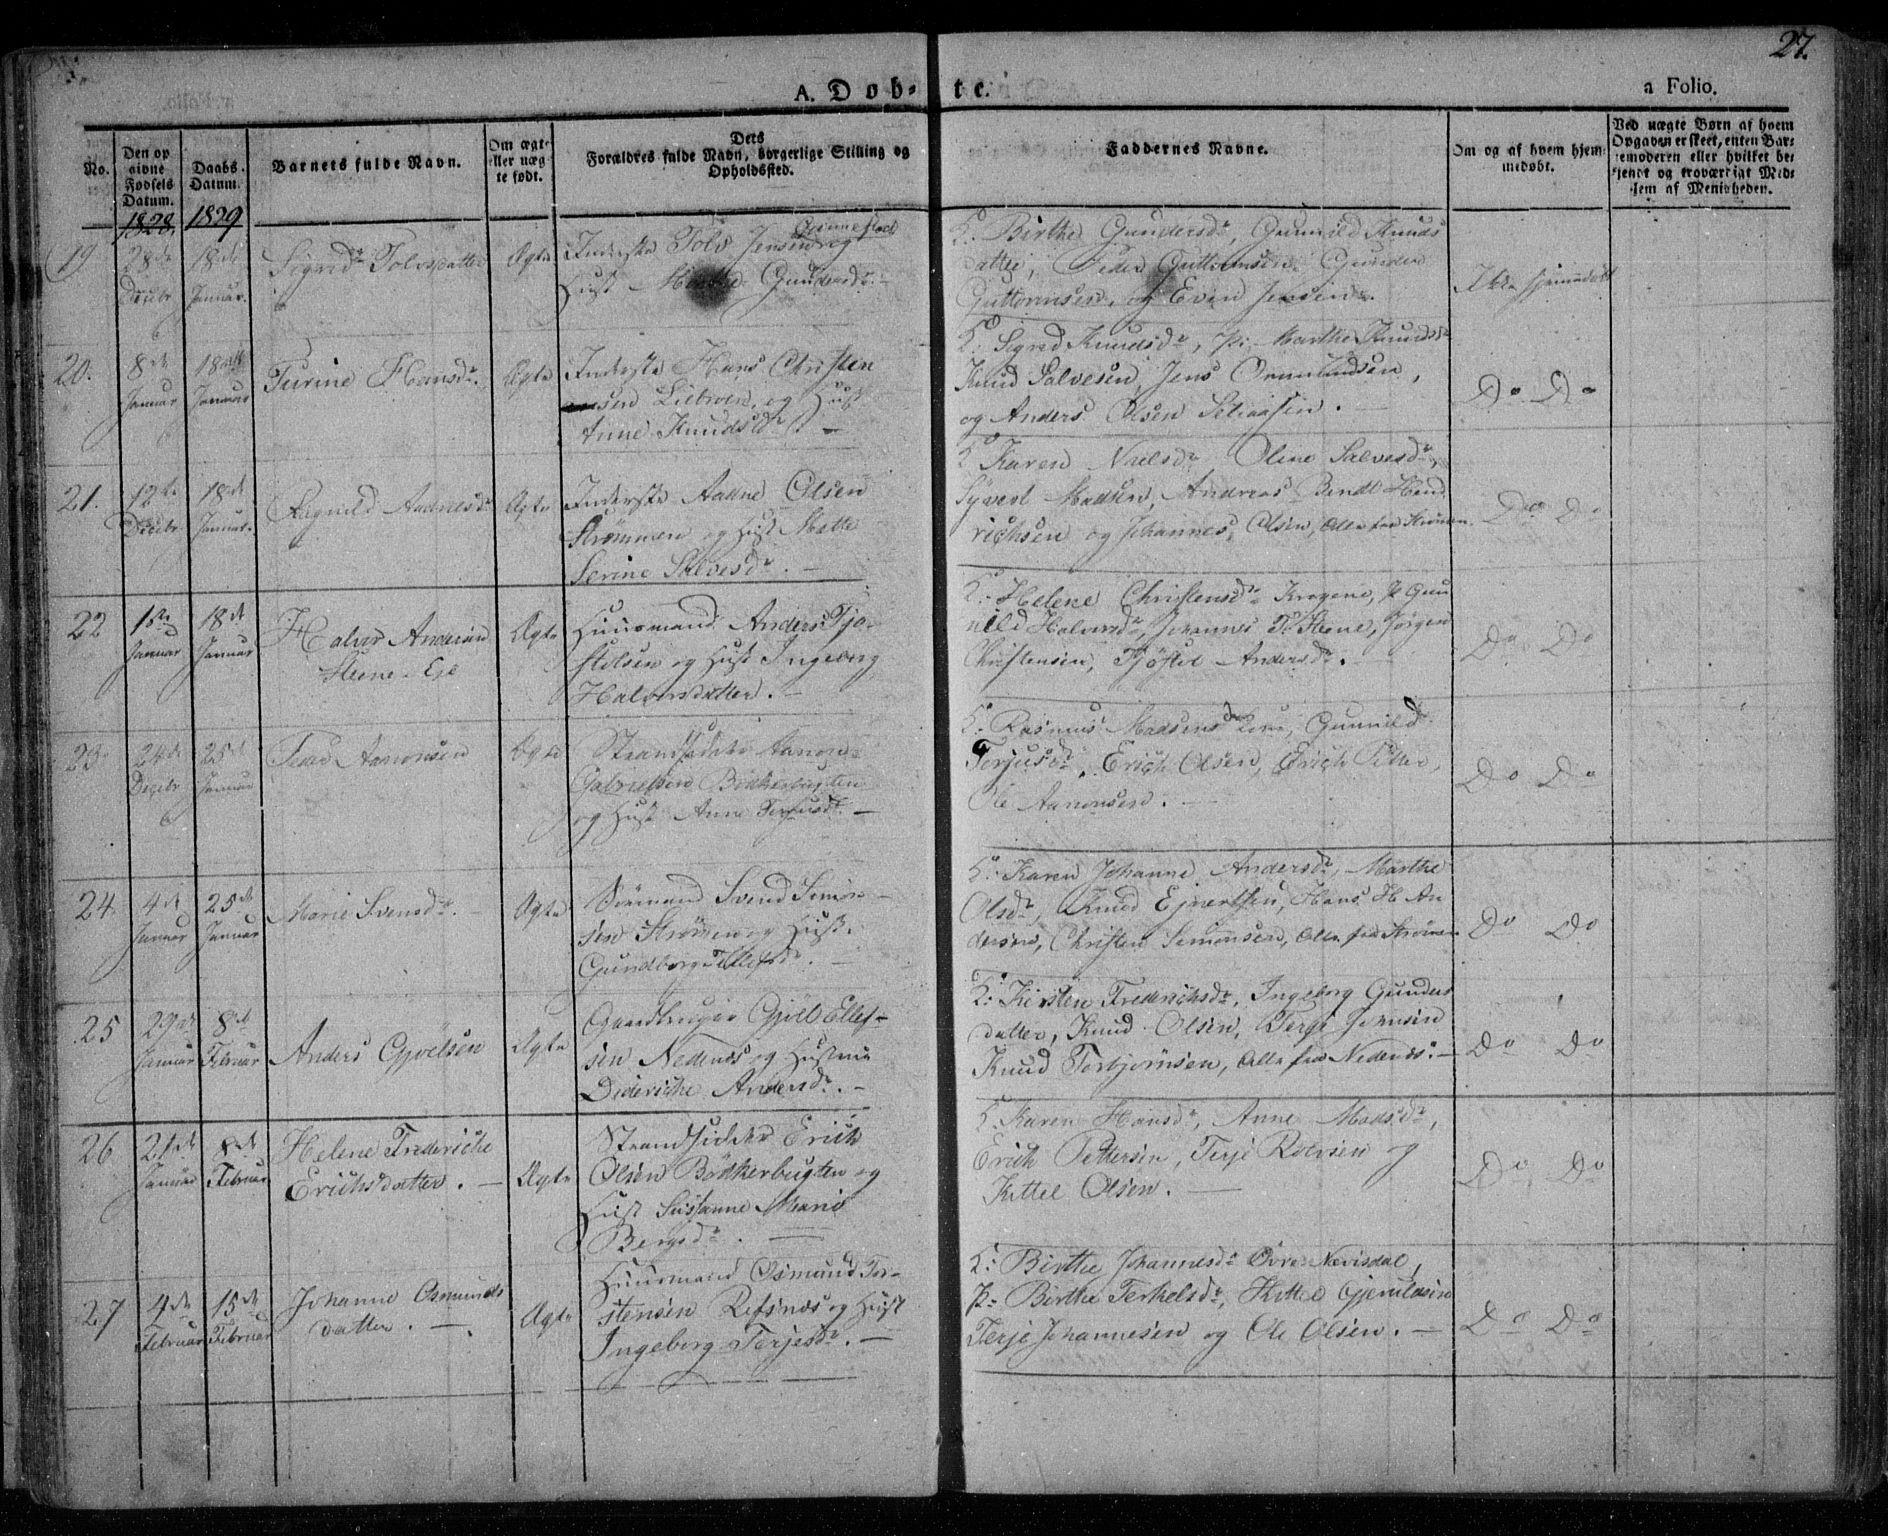 27.
A. Döb-te.
a Folio.
No.
Den op
givne
Fødsels
Datum.
Daabs-
Datum.
Barnets fulde Navn.
Om ægte
eller uæg
te født.
Dets
Forældres fulde Navn, borgerlige Stilling og
Opholdssted.
Faddernes Navne.
Om og af hvem hjem-
medøbt.
Ved uægte Børn af hvem
Opgaven er skeet, enten Bar-
nemoderen eller hvilket be-
kjendt og troværdigt Med-
lem af Menigheden.
1828. 1829
19
28de
Decbr
18de
Januar.
Sigred Tolvsdatter
Ægte
Inderste Tolv Jensen og
Hust Marthe Gundersdr. -
K: Birthe Gundersdr, Gunnild Knuds
datter, Peder Guttormsen Gunder
Guttormsen, og Even Jensen.
Ikke hjemmedøbt
20.
8de
Januar
18de
Januar
Turine Hansdr.
Ægte
Inderste Hans Christen
sen Liebroen, og Hust
Anne Knudsdr -
K: Sigred Knudsdr, p: Marthe Knudsdr
Knud Salvesen, Jens Omundsen,
og Anders Olsen .
Do Do
21.
12te
Decbr
18de
Januar.
Ragnild Aadnesdr
Ægte
Inderste Aadne Olsen
Strømmen og Hust Mette
Serine Salvesdr. -
K: Karen Nielsdr Oline Salvesdr,
Syvert Madsen, Andreas Bendt Hend
richsen og Johannes Olsen, Alle fra Strømen.
Do Do
22
1ste
Januar
18de
Januar
Halvor Andersen
Steene-Eje
Ægte
Huusmand Anders Tjø-
stelsen og Hust Ingeborg
Halvorsdatter. -
K: Helene Christensdr Krogene, p Gun
nild Halvorsdr, Johannes T. Steene, Jørgen
Christensen, Tjøstel Andersdr. -
Do Do
23.
24de
Decbr
25de
Januar
Aanonsen
Ægte
Strandsidder Aanon
Gabrielsen Bødkerbugten
og Hust Anne Terjusdr. -
K: Rasmus Madsens Kone, Gunnild
Terjusdr, Erich Olsen, Erich Petter,
Ole Aanonsen. -
Do Do
24
4de
Januar
25de
Januar
Marie Svensdr. -
Ægte
Sømand Svend Simon-
sen Strømen og Hust.
Gundborg Tellefsdr. -
K: Karen Johanne Andersdr, Marthe
Olsdr, Knud Ejvertsen, Hans H. An
dersen, Christen Simonsen, Alle fra Strømen
Do Do
25
29de
Januar
8de
Februar
Anders Gjøelsen
Ægte
Gaardbruger Gjöel Ellef-
sen Nedenæs og Hustrue
Dideriche Andersdr. -
K: Kirsten Frederichsdr, Ingeborg Gunders
datter, Knud Olsen, Terje Jensen
Knud Torbjørnsen, Alle fra Nedenæs. -
Do Do
26
21de
Januar
8de
Februar
Helene Frederiche
Erichsdatter. -
Ægte
Strandsidder Erich
Olsen Bödkerbugten og
Hust Susanne Marie
Bergsdr. -
K: Karen Hansdr, Anne Madsdr,
Erich Pettersen, Terje Roersen og
Kittel Olsen. -
Do Do
27
4de
Februar
15de
Februar
Johanne Osmunds
datter. -
Ægte
Huusmand Osmund Tor-
stensen Refsnæs og Hust
Ingeborg Terjesdr. -
K: Birthe Johannesdr Øvre Nævisdal,
p: Birthe Terkelsdr, Kittel Gjeruldsen
Terje Johannesen og Ole Olsen. -
Do Do